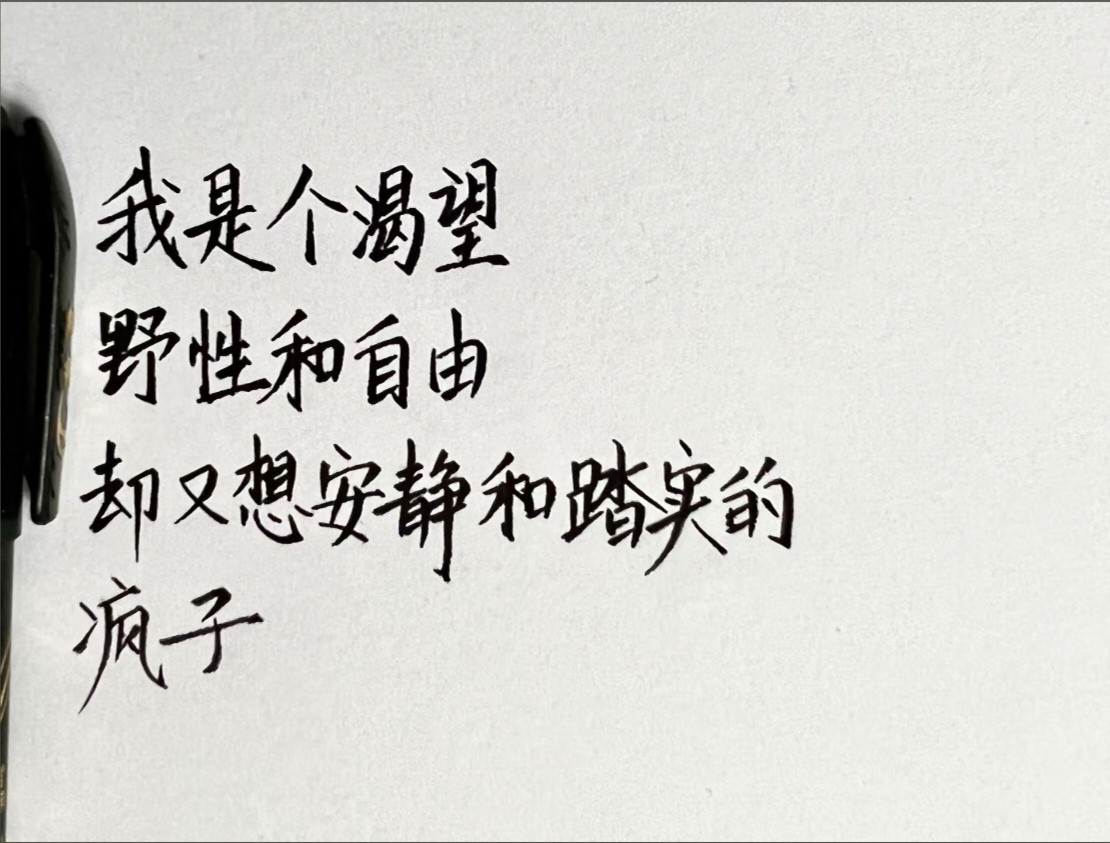 我是个渴望
野性和自由
却又想安静和踏实的
疯子